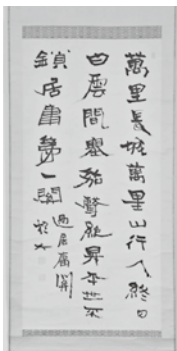 萬里長城萬里山行人終日
白雲間聲昇平世不
鎖居庸第一關
過居庸關